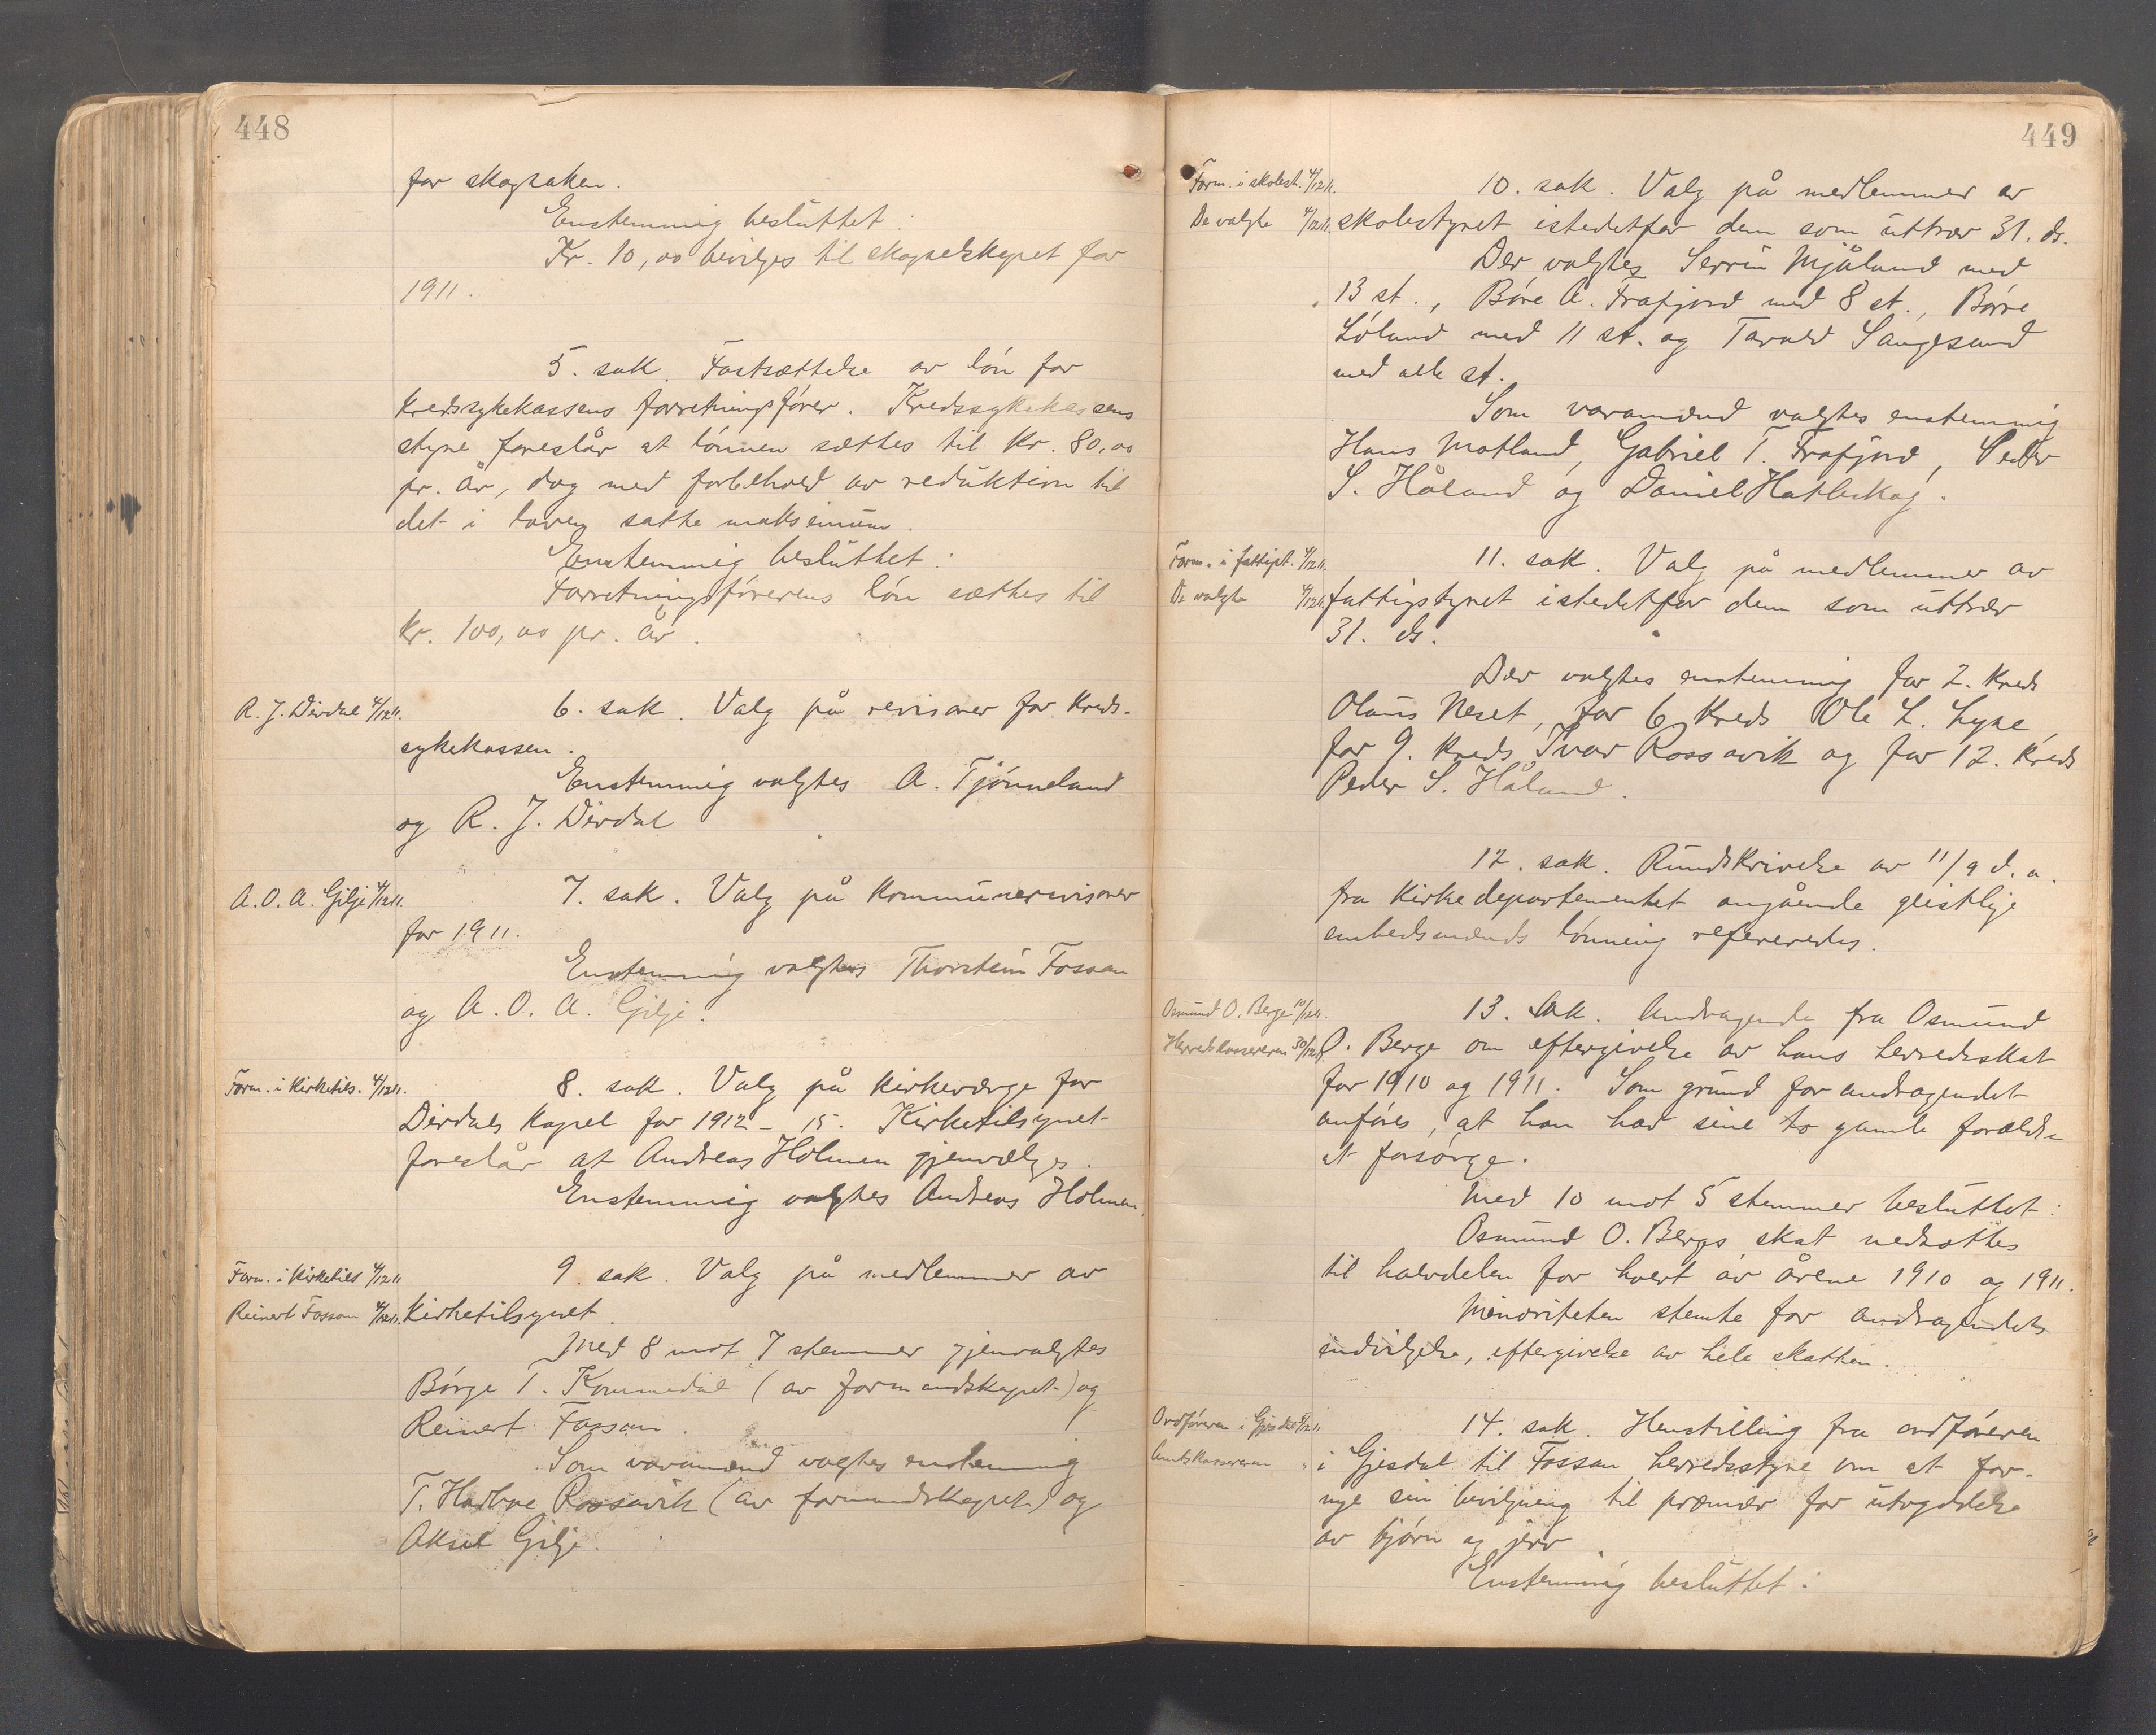 448
for skogsaken.
Enstemmig besluttet:
Kr. 10,00 bevilges til skogselskapet for
1911.
5. sak. Fastsættelse av løn for
kredssykekassens forretningsfører. Kredssykekassens
styre foreslår at lønnen sættes til kr. 80,00
pr. år, dog med forbehold av reduktion til
det i loven satte maksimum.
Enstemmig besluttet:
Forretningsførerens løn sættes til
kr. 100,00 pr. år.
R. J. Dirdal 4/12 11.
6. sak. Valg på revisorer for kreds-
sykekassen.
Enstemmig valgtes A. Tjønneland
og R. J. Dirdal
A. O. A. Gilje 4/12 11.
7. sak. Valg på kommunerevisorer
for 1911.
Enstemmig valgtes Thorstein Fossan
og A. O. A. Gilje.
Form. i kirketils. 4/12 11.
8. sak. Valg på kirkeværge for
Dirdals kapel for 1912 - 15. Kirketilsynet
foreslår at Andreas Holmen gjenvælges.
Enstemmig valgtes Andreas Holmen.
Form. i kirketils 4/12 11
9. sak. Valg på medlemmer av
Reinert Fossan 4/12 11. kirketilsynet.
Med 8 mot 7 stemmer gjenvalgtes
Børge T. Kommedal (av formandskapet) og
Reinert Fossan.
Som varamænd valgtes enstemmig
T. Rossavik (av formandskapet) og
Aksel Gilje.
449
Form. i skolest. 4/12 11.
10. sak. Valg på medlemmer av
De valgte 4/12 11. skolestyret istedetfor dem som uttrær 31. ds.
Der valgtes Serrin Mjåland med
13 st., Børe A. Frafjord med 8 st., Børre
Løland med 11 st. og Tarald Sangesand
med alle st.
Som varamænd valgtes enstemmig
Hans Motland, Gabriel T. Frafjord, Peder
S. Håland og Daniel Hatleskog.
Form. i fattigst. 4/12 11.
11. sak. Valg på medlemmer av
De valgte 4/12 11. fattigstyret istedetfor dem som uttrær
31. ds.
Der valgtes enstemmig for 2. kreds
Olaus Neset, for 6 kreds Ole L. Lyse,
for 9. kreds Ivar Rossavik og for 12. kreds
Peder S. Håland.
12. sak. Rundskrivelse av 11/9 d. a.
fra kirkedepartementet angående geistlige
embedsmænds lønning refereredes.
Osmund O. Berge 10/12 11.
13. Sak. Andragende fra Osmund
Herredskassereren 30/12 11 O. Berge om eftergivelse av hans herredsskat
for 1910 og 1911. Som grund for andragendet
anføres, at han har sine to gamle forældre
at forsørge.
Med 10 mot 5 stemmer besluttet:
Osmund O. Berges skat nedsættes
til halvdelen for hvert av årene 1910 og 1911.
Minoriteten stemte for andragendets
indvilgelse, eftergivelse av hele skatten.
Ordføreren i Gjesdal
14. sak. Henstilling fra ordføreren
Amtskassereren
i Gjesdal til Fossan herredsstyre om at for-
nye sin bevilgning til præmier for utryddelse
av bjørn og jerv.
Enstemmig besluttet: